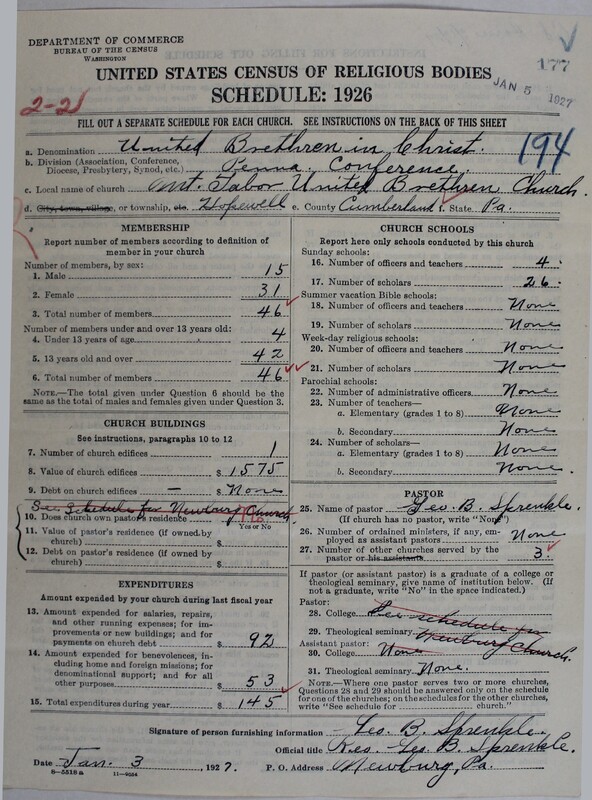 DEPARTMENT OF COMMERCE
BUREAU OF THE CENSUS
WASHINGTON
UNITED STATES CENSUS OF RELIGIOUS BODIES
SCHEDULE: 1926
177
JAN 5 1927
2-21
FILL OUT A SEPARATE SCHEDULE FOR EACH CHURCH. SEE INSTRUCTIONS ON THE BACK OF THIS SHEET
194
a. Denomination United Brethren in Christ.
b. Division (Association, Conference, Diocese, Presbytery, Synod, etc.) Penna. Conference.
c. Local name of church Mt. Tabor United Brethren Church.
d. City, town, village, or township, etc. Hopewell e. County Cumberland f. State Pa.
MEMBERSHIP
Report number of members according to definition of
member in your church
Number of members, by sex:
1. Male 15
2. Female 31
3. Total number of members 46
Number of members under and over 13 years old:
4. Under 13 years of age 4
5. 13 years old and over 42
6. Total number of members 46
NOTE.—The total given under Question 6 should be
the same as the total of males and females given under Question 3.
CHURCH BUILDINGS
See instructions, paragraphs 10 to 12
7. Number of church edifices 1
8. Value of church edifices $ 1575
9. Debt on church edifices — $ None
See Schedule for Newburg Church.
10. Does church own pastor's residence No
Yes or No
11. Value of pastor's residence (if owned by
church) $
12. Debt on pastor's residence (if owned by
church) $
EXPENDITURES
Amount expended by your church during last fiscal year
13. Amount expended for salaries, repairs,
and other running expenses; for im-
provements or new buildings; and for
payments on church debt $ 92
14. Amount expended for benevolences, in-
cluding home and foreign missions; for
denominational support; and for all
other purposes $ 53
15. Total expenditures during year $ 145
CHURCH SCHOOLS
Report here only schools conducted by this church
Sunday schools:
16. Number of officers and teachers 4.
17. Number of scholars 26.
Summer vacation Bible schools:
18. Number of officers and teachers None
19. Number of scholars None
Week-day religious schools:
20. Number of officers and teachers None
21. Number of scholars None
Parochial schools:
22. Number of administrative officers None
23. Number of teachers—
a. Elementary (grades 1 to 8) None
b. Secondary None
24. Number of scholars—
a. Elementary (grades 1 to 8) None
b. Secondary None.
PASTOR
25. Name of pastor Geo. B. Sprenkle.
(If church has no pastor, write "None")
26. Number of ordained ministers, if any, em-
ployed as assistant pastors None
27. Number of other churches served by the
pastor or his assistants 3.
If pastor (or assistant pastor) is a graduate of a college or
theological seminary, give name of institution below. (If
not a graduate, write "No" in the space indicated.)
Pastor:
28. College See schedule for
29. Theological seminary Newburg Church.
Assistant pastor:
30. College None
31. Theological seminary None.
NOTE.—Where one pastor serves two or more churches,
Questions 28 and 29 should be answered only on the schedule
for one of the churches; on the schedules for other churches,
write "See schedule for church."
Signature of person furnishing information Geo. B. Sprenkle.
Official title Rev. Geo. B. Sprenkle.
Date Jan. 3, 1927. P. O. Address Newburg, Pa.
8—5518 a 11—9054